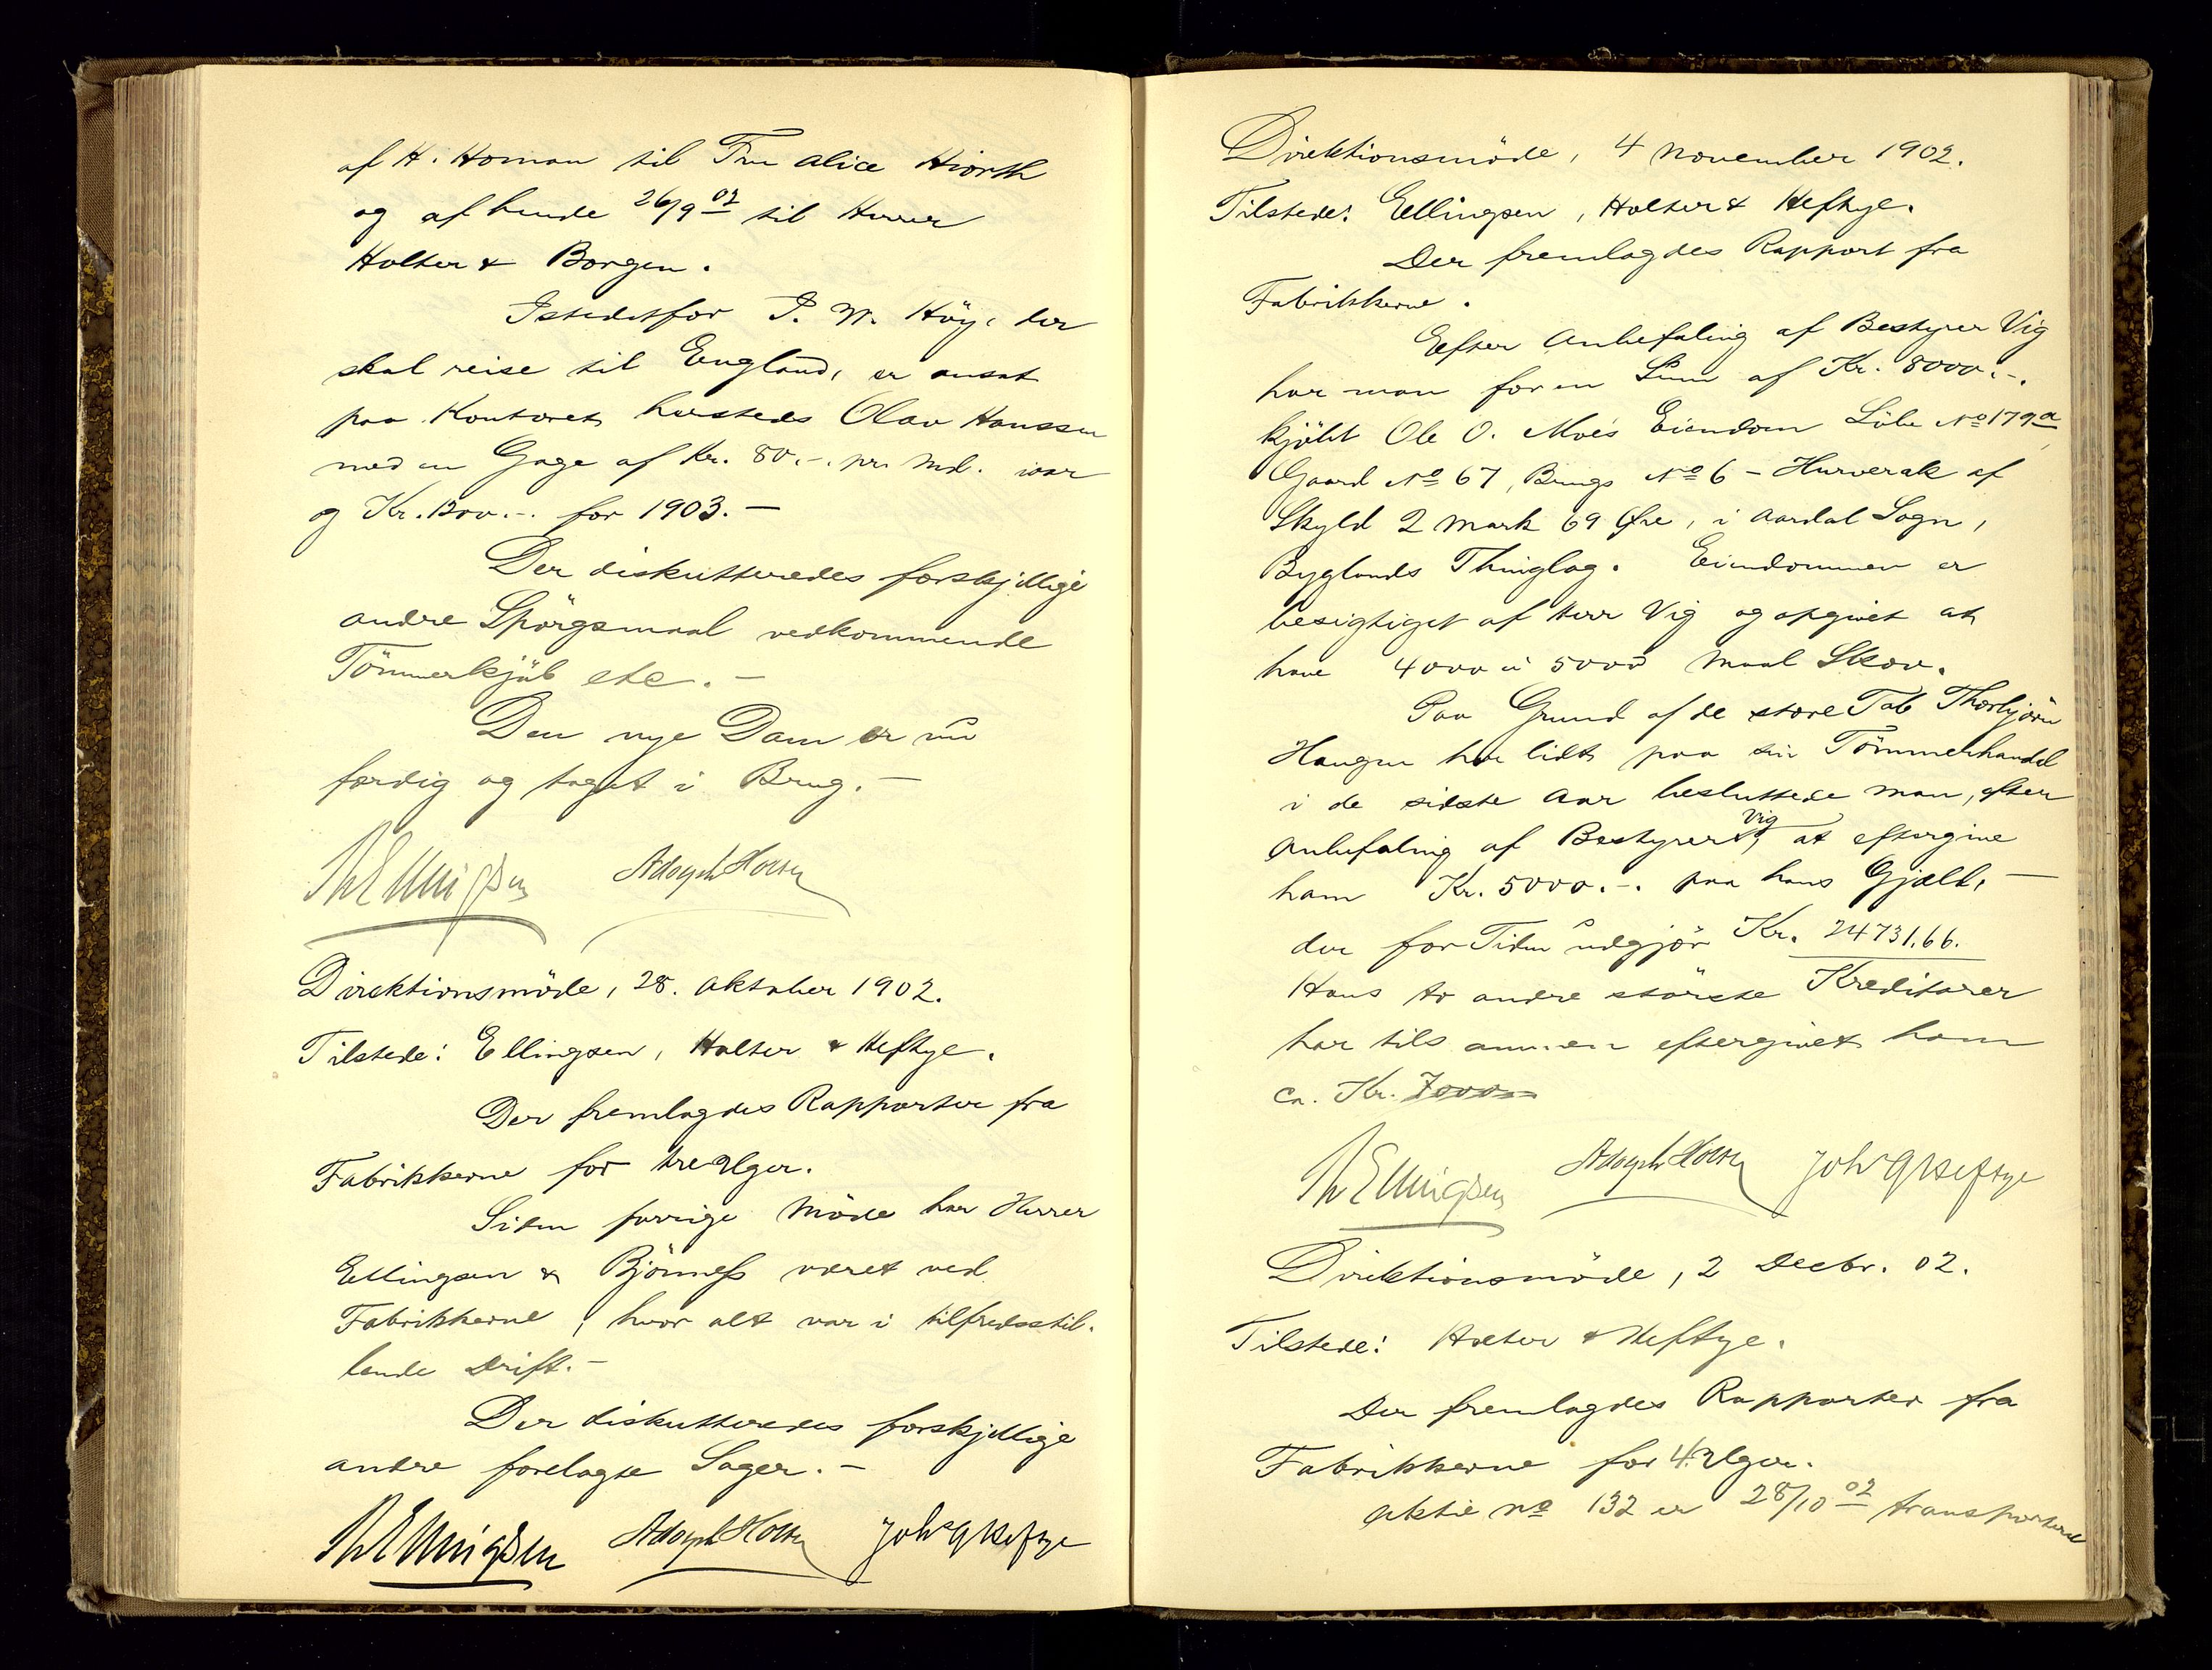 af H. Homan til Fru Alice Hiorth
og af hende 26/9 02 til Herrer
Holter & Borgen.
Istedetfor P. W. Höy, der
skal reise til England, er ansat
paa Kontoret hersteds Olav Hanssen
med en Gage af Kr. 80.-. pr. Md. iaar
og Kr. 1200.-. for 1903. —
Der diskutteredes forskjellige
andre Spörgsmaal vedkommende
Tömmerkjöb etc. —
Den nye Dam er nu
færdig og taget i Brug. —
Th Ellingsen Adolph Holter
Direktionsmöde, 28. Oktober 1902.
Tilstede: Ellingsen, Holter & Heftye.
Der fremlagdes Rapporter fra
Fabrikkerne for tre Uger.
Siden forrige Möde har Herrer
Ellingsen & Björness været ved
Fabrikkerne, hvor alt var i tilfredsstil-
lende Drift. —
Der diskutteredes forskjellige
andre forelagte Sager. —
Th Ellingsen Adolph Holter Joh. Heftye
Direktionsmöde, 4 November 1902.
Tilstede: Ellingsen, Holter & Heftye.
Der fremlagdes Rapport fra
Fabrikkerne.
Efter Anbefaling af Bestyrer Vig
har man for en Sum af Kr. 8000.-.
kjöbt Ole O. Moe's Eiendom Löbe No 179a,
Gaard No 67, Brugs No 6 – Hurverak af
Skyld 2 Mark 69 Øre, i Aardal Sogn,
Byglands Thinglag. Eiendommen er
besigtiget af Herr Vig og opgivet at
have 4000 à 5000 Maal Skov.
Paa Grund af de store Tab Thorbjörn
Haugen har lidt paa sin Tömmerhandel
i de sidste Aar besluttede man, efter
Anbefaling af Bestyrer Vig, at eftergive
ham Kr. 5000.-. paa hans Gjæld, —
der for Tiden udgjör Kr. 24731.66.
Hans to andre störste Kreditorer
har tilsammen eftergivet ham
ca. Kr. 7000
Th Ellingsen Adolph Holter Joh. Heftye
Direktionsmöde, 2 Decbr. 02.
Tilstede: Holter & Heftye.
Der fremlagdes Rapporter fra
Fabrikkerne for 4 Uger.
Aktie No 132 er 28/10 02 transporteret